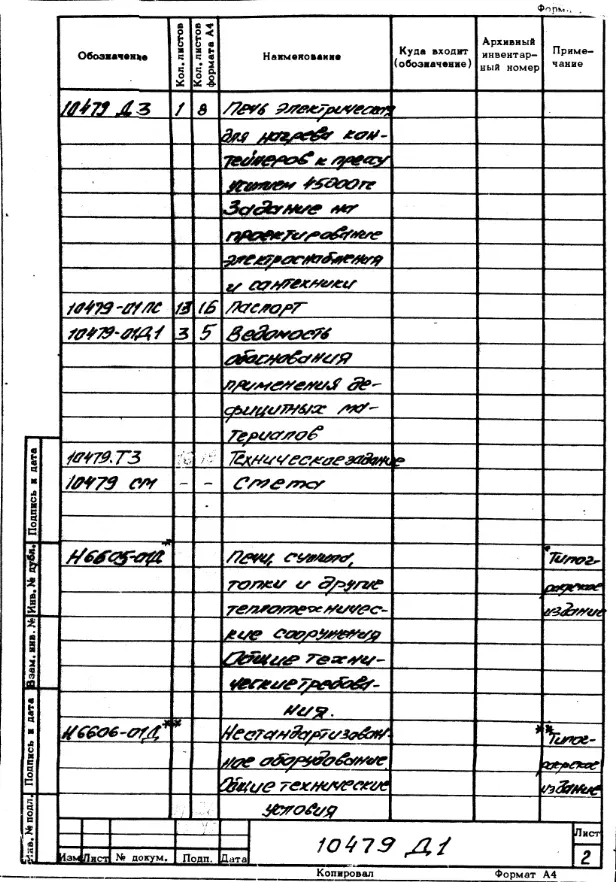 Форм
Обозначение Кол. листов Кол. листов формата А4 Наименование Куда входит (обозначение) Архивный инвентарный номер Примечание
10479 Д3 1 8 Печь электрическая
для нагрева кон-
тейнеров к прессу
усилием 15000тс
Задание на
проектирование
электроснабжения
и сантехники
10479-01ПС 13 16 Паспорт
10479-01Д1 3 5 Ведомость
обоснования
применения де-
фицитных ма-
териалов
10479.ТЗ Техническое задание
10479 СМ - - Смета
Н6605-01Д* Печи, сушила, *Типог-
топки и другие рафское
теплотехничес- издание
кие сооружения
Общие техни-
ческие требова-
ния.
Н6606-01Д** Нестандартизован- **Типог-
ное оборудование рафское
Общие технические издание
условия
Подпись и дата
Инв. № дубл.
Взам. инв. №
Подпись и дата
Инв. № подл.
Изм Лист № докум. Подп. Дата
10479 Д1
Лист
2
Копировал Формат А4